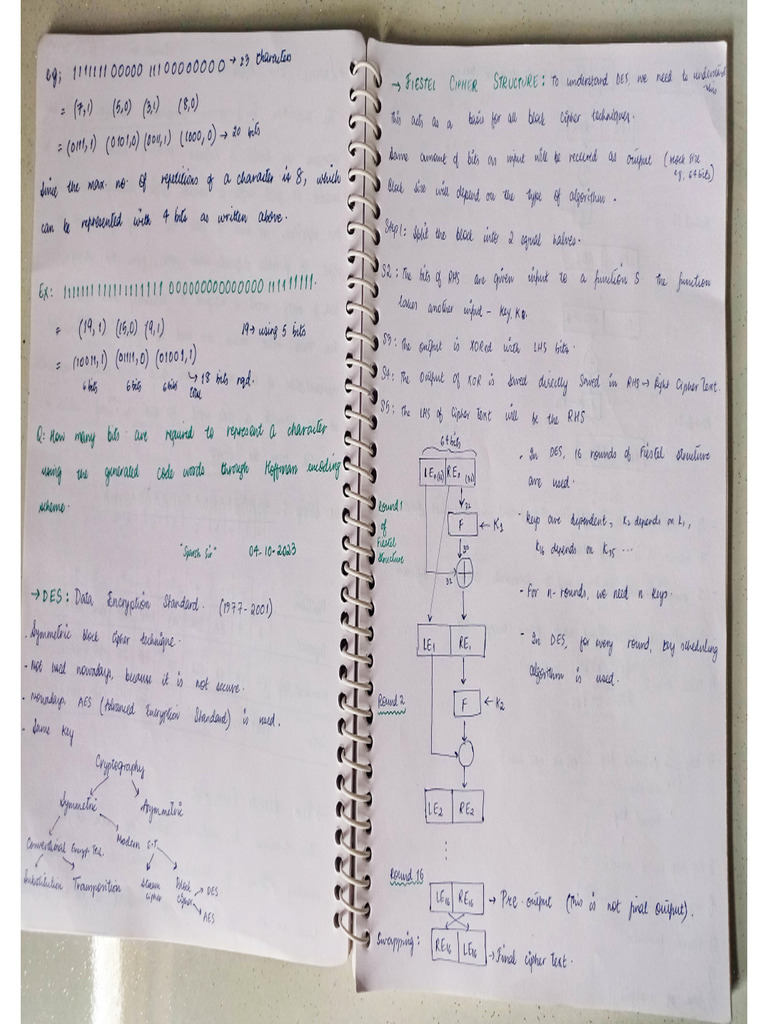 eg; 1111111 00000 111 00000000 → 23 characters
= (7,1) (5,0) (3,1) (8,0)
= (0111,1) (0101,0) (0011,1) (1000,0) → 20 bits
Since the max. no. of repetitions of a character is 8, which
can be represented with 4 bits as written above.
Ex: 1111111111111111111 000000000000000 111111111.
= (19,1) (15,0) (9,1) 19 → using 5 bits
= (10011,1) (01111,0) (01001,1)
6 bits 6 bits 6 bits → 18 bits reqd.
Q: How many bits are required to represent a character
using the generated code words through Hoffman encoding
scheme.
04-10-2023
→ DES: Data Encryption Standard. (1977-2001)
- Symmetric block cipher technique.
- Not used nowadays, because it is not secure.
- Nowadays AES (Advanced Encryption Standard) is used.
- Same key
Cryptography
Symmetric Asymmetric
Conventional Encryp Tec. Modern E.T
Substitution Transposition Stream cipher Block cipher → DES
→ AES
→ FIESTEL CIPHER STRUCTURE: To understand DES, we need to understand this
This acts as a basis for all block cipher techniques.
Same amount of bits as input will be received as output (block size eg, 64 bits)
Block size will depend on the type of algorithm.
Step 1: Split the block into 2 equal halves.
S2: The bits of RHS are given input to a function & the function
takes another input - key, K
S3: The output is XORed with LHS bits.
S4: The output of XOR is saved directly saved in RHS → Right Cipher Text.
S5: The LHS of Cipher Text will be the RHS
64 bits
LE0 (32) RE0 (32)
Round 1
of
Fiestel
Structure
32
F ← K1
32
LE1 RE1
Round 2
F ← K2
LE2 RE2
- In DES, 16 rounds of Fiestel structure
are used.
- Keys are dependent, K2 depends on K1,
K16 depends on K15 ...
- For n-rounds, we need n keys.
- In DES, for every round, key scheduling
algorithm is used.
Round 16
LE16 RE16 → Pre-output (This is not final output).
Swapping: RE16 LE16 → Final cipher text.